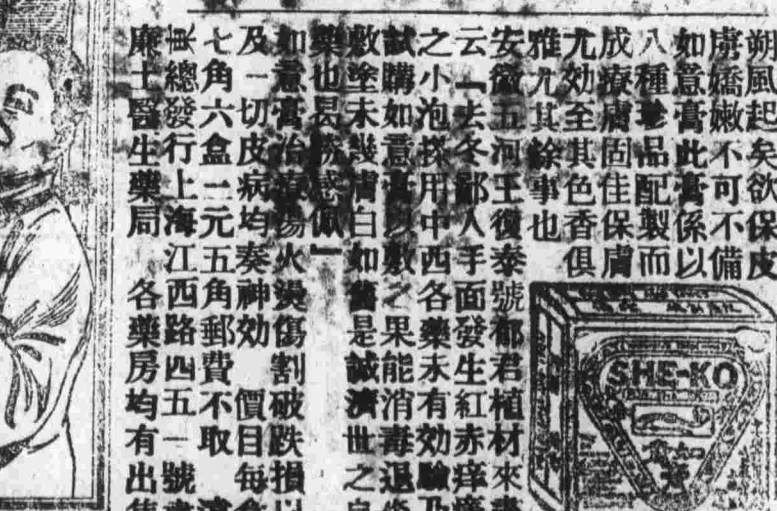 朔風起矣欲保皮
膚嬌嫩不可不備
如意膏此膏係以
八種珍品配製而
成療膚固佳保膚
尤効全其色香俱
雅尤其餘事也
安徽五河王復泰號都君植材來
云「去冬鄙人手面發生紅赤痒
之小泡搽用中西各藥未有効驗乃
試購如意膏以敷之果能消毒退
敷塗未幾膚白如舊是誠濟世之良
藥也曷勝感佩」
如意膏治湯火燙傷割破跌損以
及一切皮病均奏神効 價目每
七角六盒二元五角郵費不取
東總發行上海江西路四五一號
廉士醫生藥局 各藥房均有出售
SHE-KO
如意膏